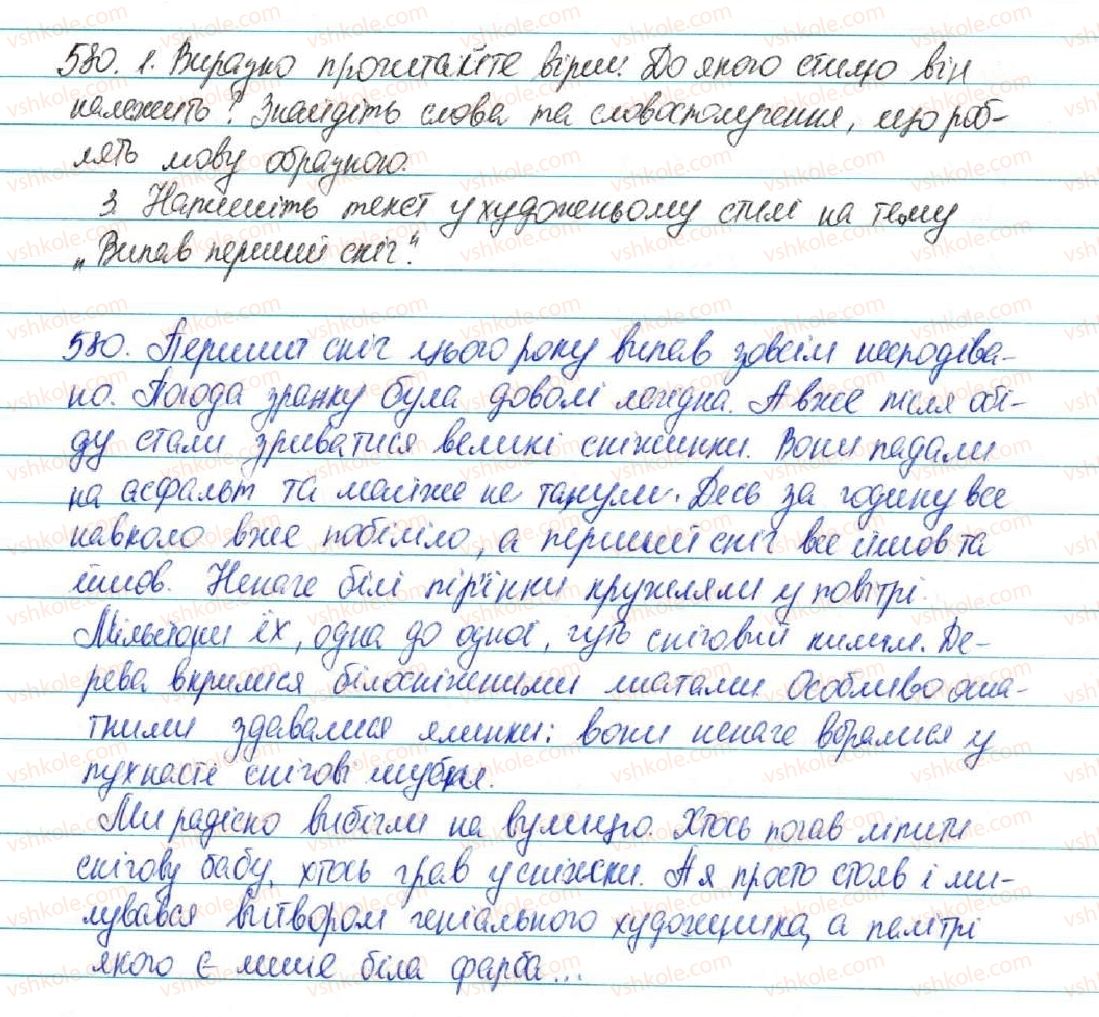 580. 1. Виразно прочитайте вірш. До якого стилю він
належить? Знайдіть слова та словосполучення, що роб-
лять мову образною.
3. Напишіть текст у художньому стилі на тему
„Випав перший сніг".
580. Перший сніг цього року випав зовсім несподіва-
но. Погода зранку була доволі лагідна. А вже після обі-
ду стали зриватися великі сніжинки. Вони падали
на асфальт та майже не танули. Десь за годину все
навколо вже побіліло, а перший сніг все йшов та
йшов. Неначе білі пір'їнки кружляли у повітрі.
Мільйони їх, одна до одної, тчуть сніговий килим. Де-
рева вкрилися білосніжними шатами. Особливо оша-
тними здавалися ялинки: вони неначе вбралися у
пухнасті снігові шубки.
Ми радісно вибігли на вулицю. Хтось почав ліпити
снігову бабу, хтось грав у сніжки. А я просто стояв і ми-
лувався витвором геніального художника, а палітрі
якого є лише біла фарба...
vshkole.com